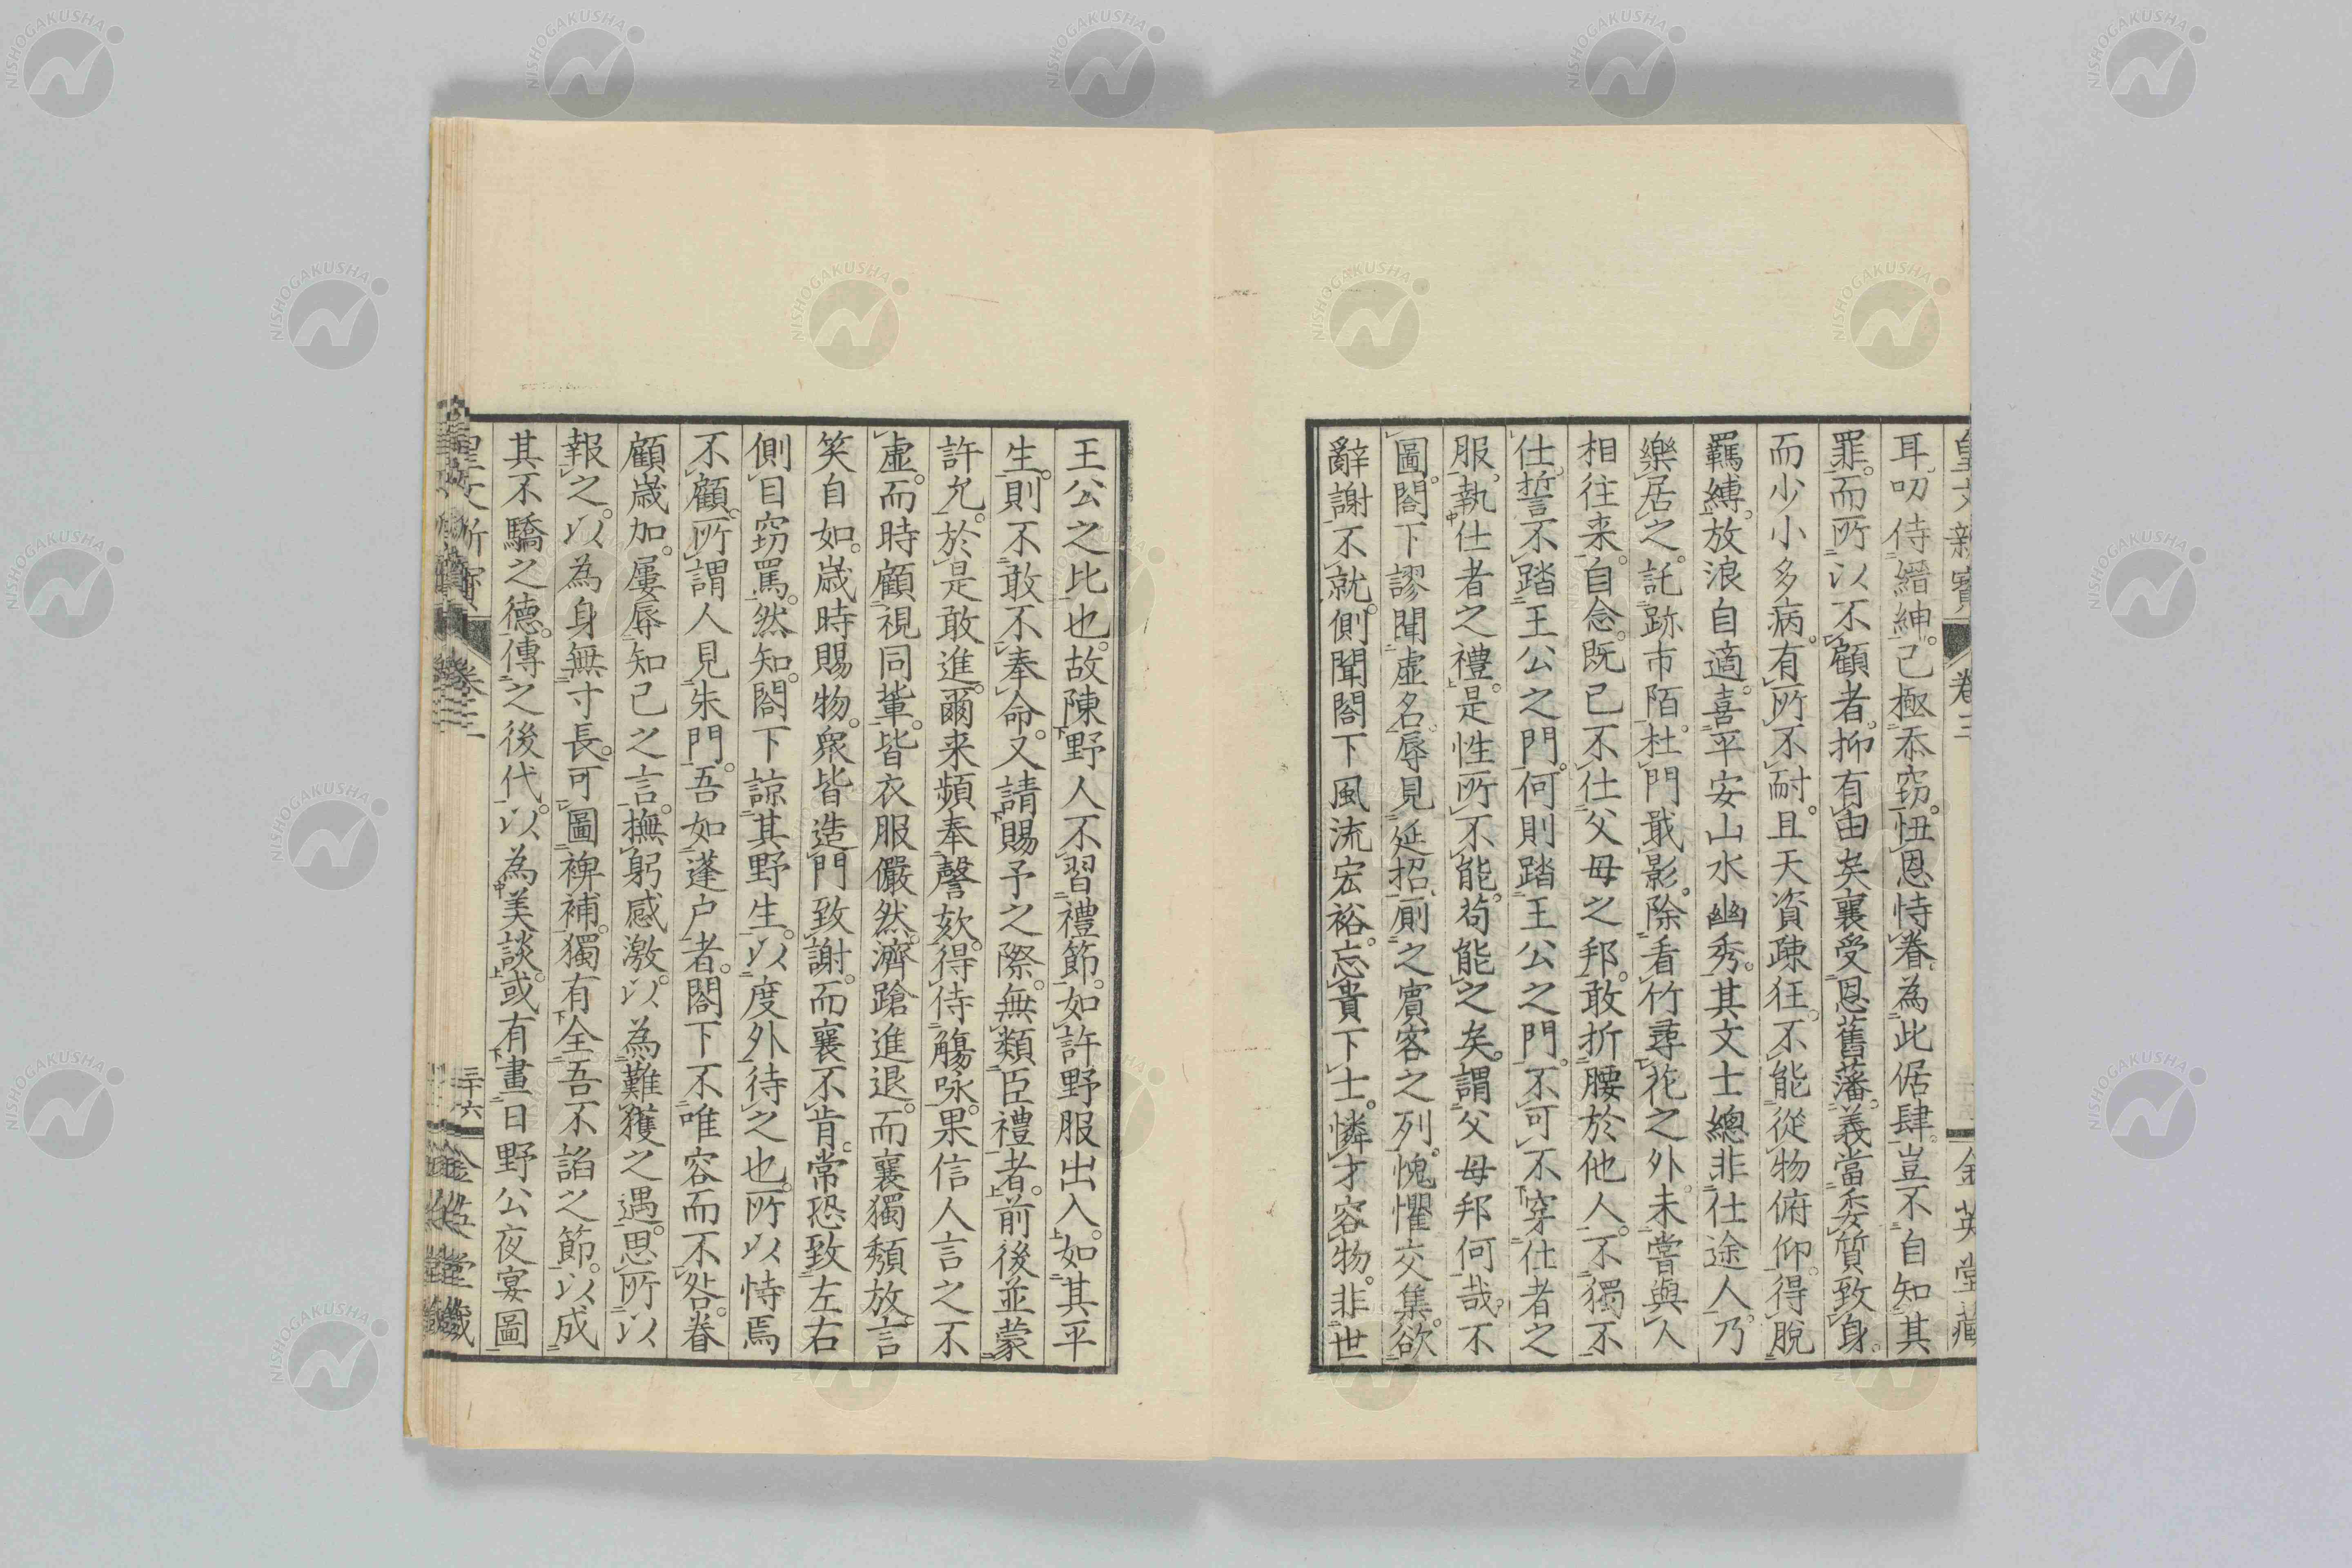 皇文新寶 卷三 金英堂藏
耳叨侍縉紳。已極忝窃。忸恩恃眷。為此倨肆。豈不自知其
罪。而所以不顧者。抑有由矣襄受恩舊藩。義當委質致身。
而少小多病。有所不耐。且天資疎狂。不能從物俯仰。得脫
羈縛。放浪自適。喜平安山水幽秀。其文士總非仕途人。乃
樂居之。託跡市陌。杜門戢影。除看竹尋花之外。未嘗與人
相往来。自念。既已不仕父母之邦。敢折腰於他人。不獨不
仕。誓不踏王公之門。何則踏王公之門。不可不穿仕者之
服。執仕者之禮。是性所不能。苟能之矣。謂父母邦何哉。不
圖。閤下謬聞虛名。辱見延招。厠之賓客之列。愧懼交集。欲
辭謝不就。側聞閤下風流宏裕。忘貴下士。憐才容物。非世
王公之比也。故陳野人不習禮節。如許野服出入。如其平
生。則不敢不奉命。又請賜予之際。無類臣禮者。前後並蒙
許允。於是敢進。爾来頻奉謦欬。得侍觴咏。果信人言之不
虛。而時顧視同輩。皆衣服儼然。濟蹌進退。而襄獨頽放。言
笑自如。歳時賜物。衆皆造門致謝。而襄不肯。常恐致左右
側目窃罵。然知。閤下諒其野生。以度外待之也。所以恃焉
不顧。所謂人見朱門。吾如蓬户者。閤下不唯容而不咎。眷
顧歳加。屢辱知己之言。撫躬感激。以為難獲之遇。思所以
報之。以為身無寸長。可圖裨補。獨有全吾不諂之節。以成
其不驕之德。傳之後代。以為美談。或有畫日野公夜宴圖
卷三 三十六